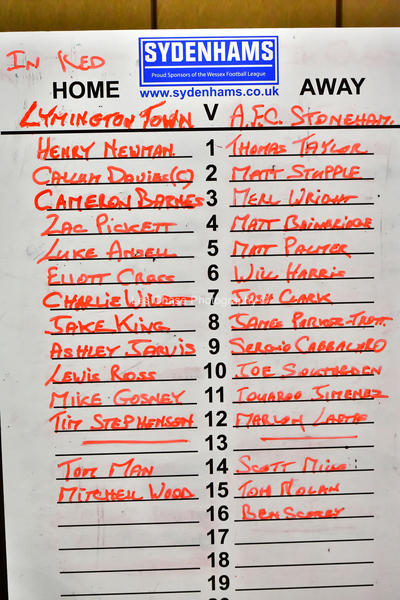 SYDENHAMS
Proud Sponsors of the Wessex Football League
www.sydenhams.co.uk
IN RED
HOME AWAY
LYMINGTON TOWN V A.F.C. STONEHAM.
HENRY NEWMAN. 1 THOMAS TAYLOR
CALLUM DAVIES (C) 2 MATT STUPPLE
CAMERON BARNES 3 MERL WRIGHT
ZAC PICKETT 4 MATT BAINBRIDGE
LUKE ANSELL 5 MATT PALMER
ELIOTT CROSS 6 WILL HARRIS
CHARLIE 7 JOSH CLARK
JAKE KING 8 JAMES PARKER-
ASHLEY JARVIS 9 SERGIO
LEWIS ROSS 10 JOE
MIKE GOSNEY 11 JIMENEZ
TIM STEPHENSON 12 MARLON
13
TOM MAN 14 SCOTT
MITCHELL WOOD 15 TOM NOLAN
16 BEN
17
18
19